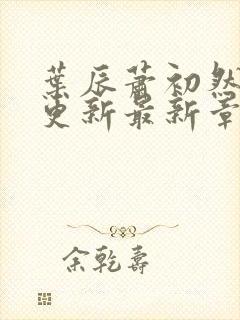 葉辰蕭初然
更新最新章
余乾壽